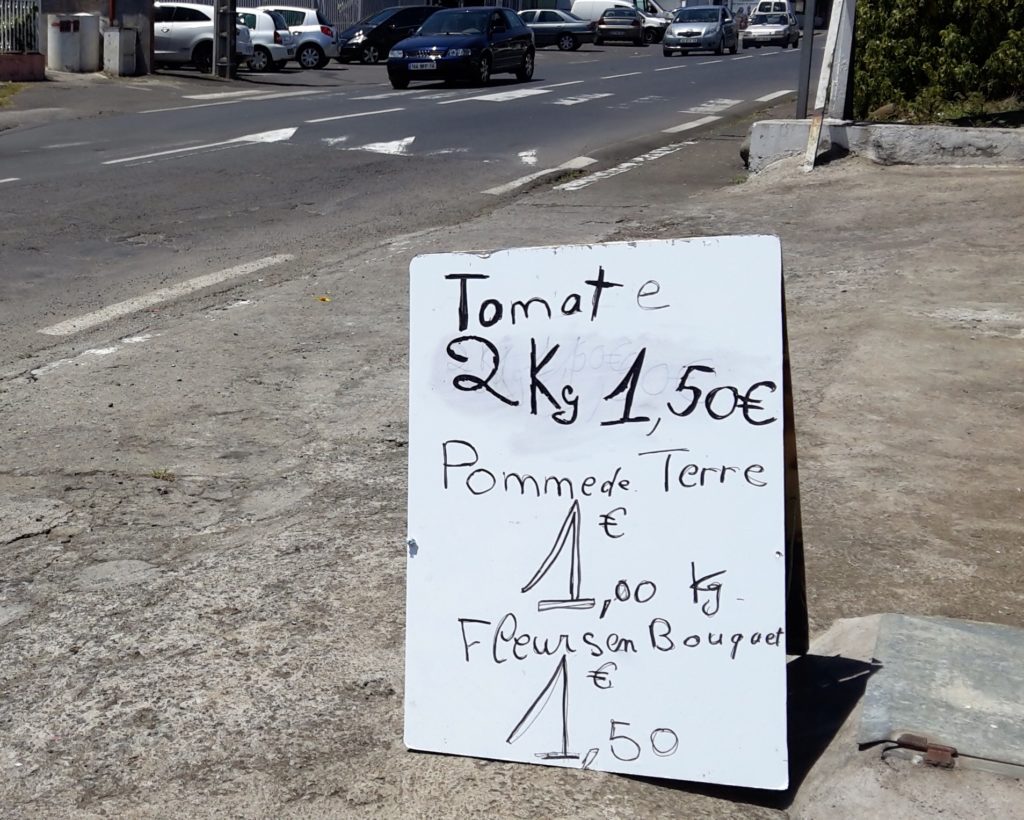 Tomate
2 Kg 1,50€
Pomme de Terre
1€,00 Kg
Fleurs en Bouquet
1€,50